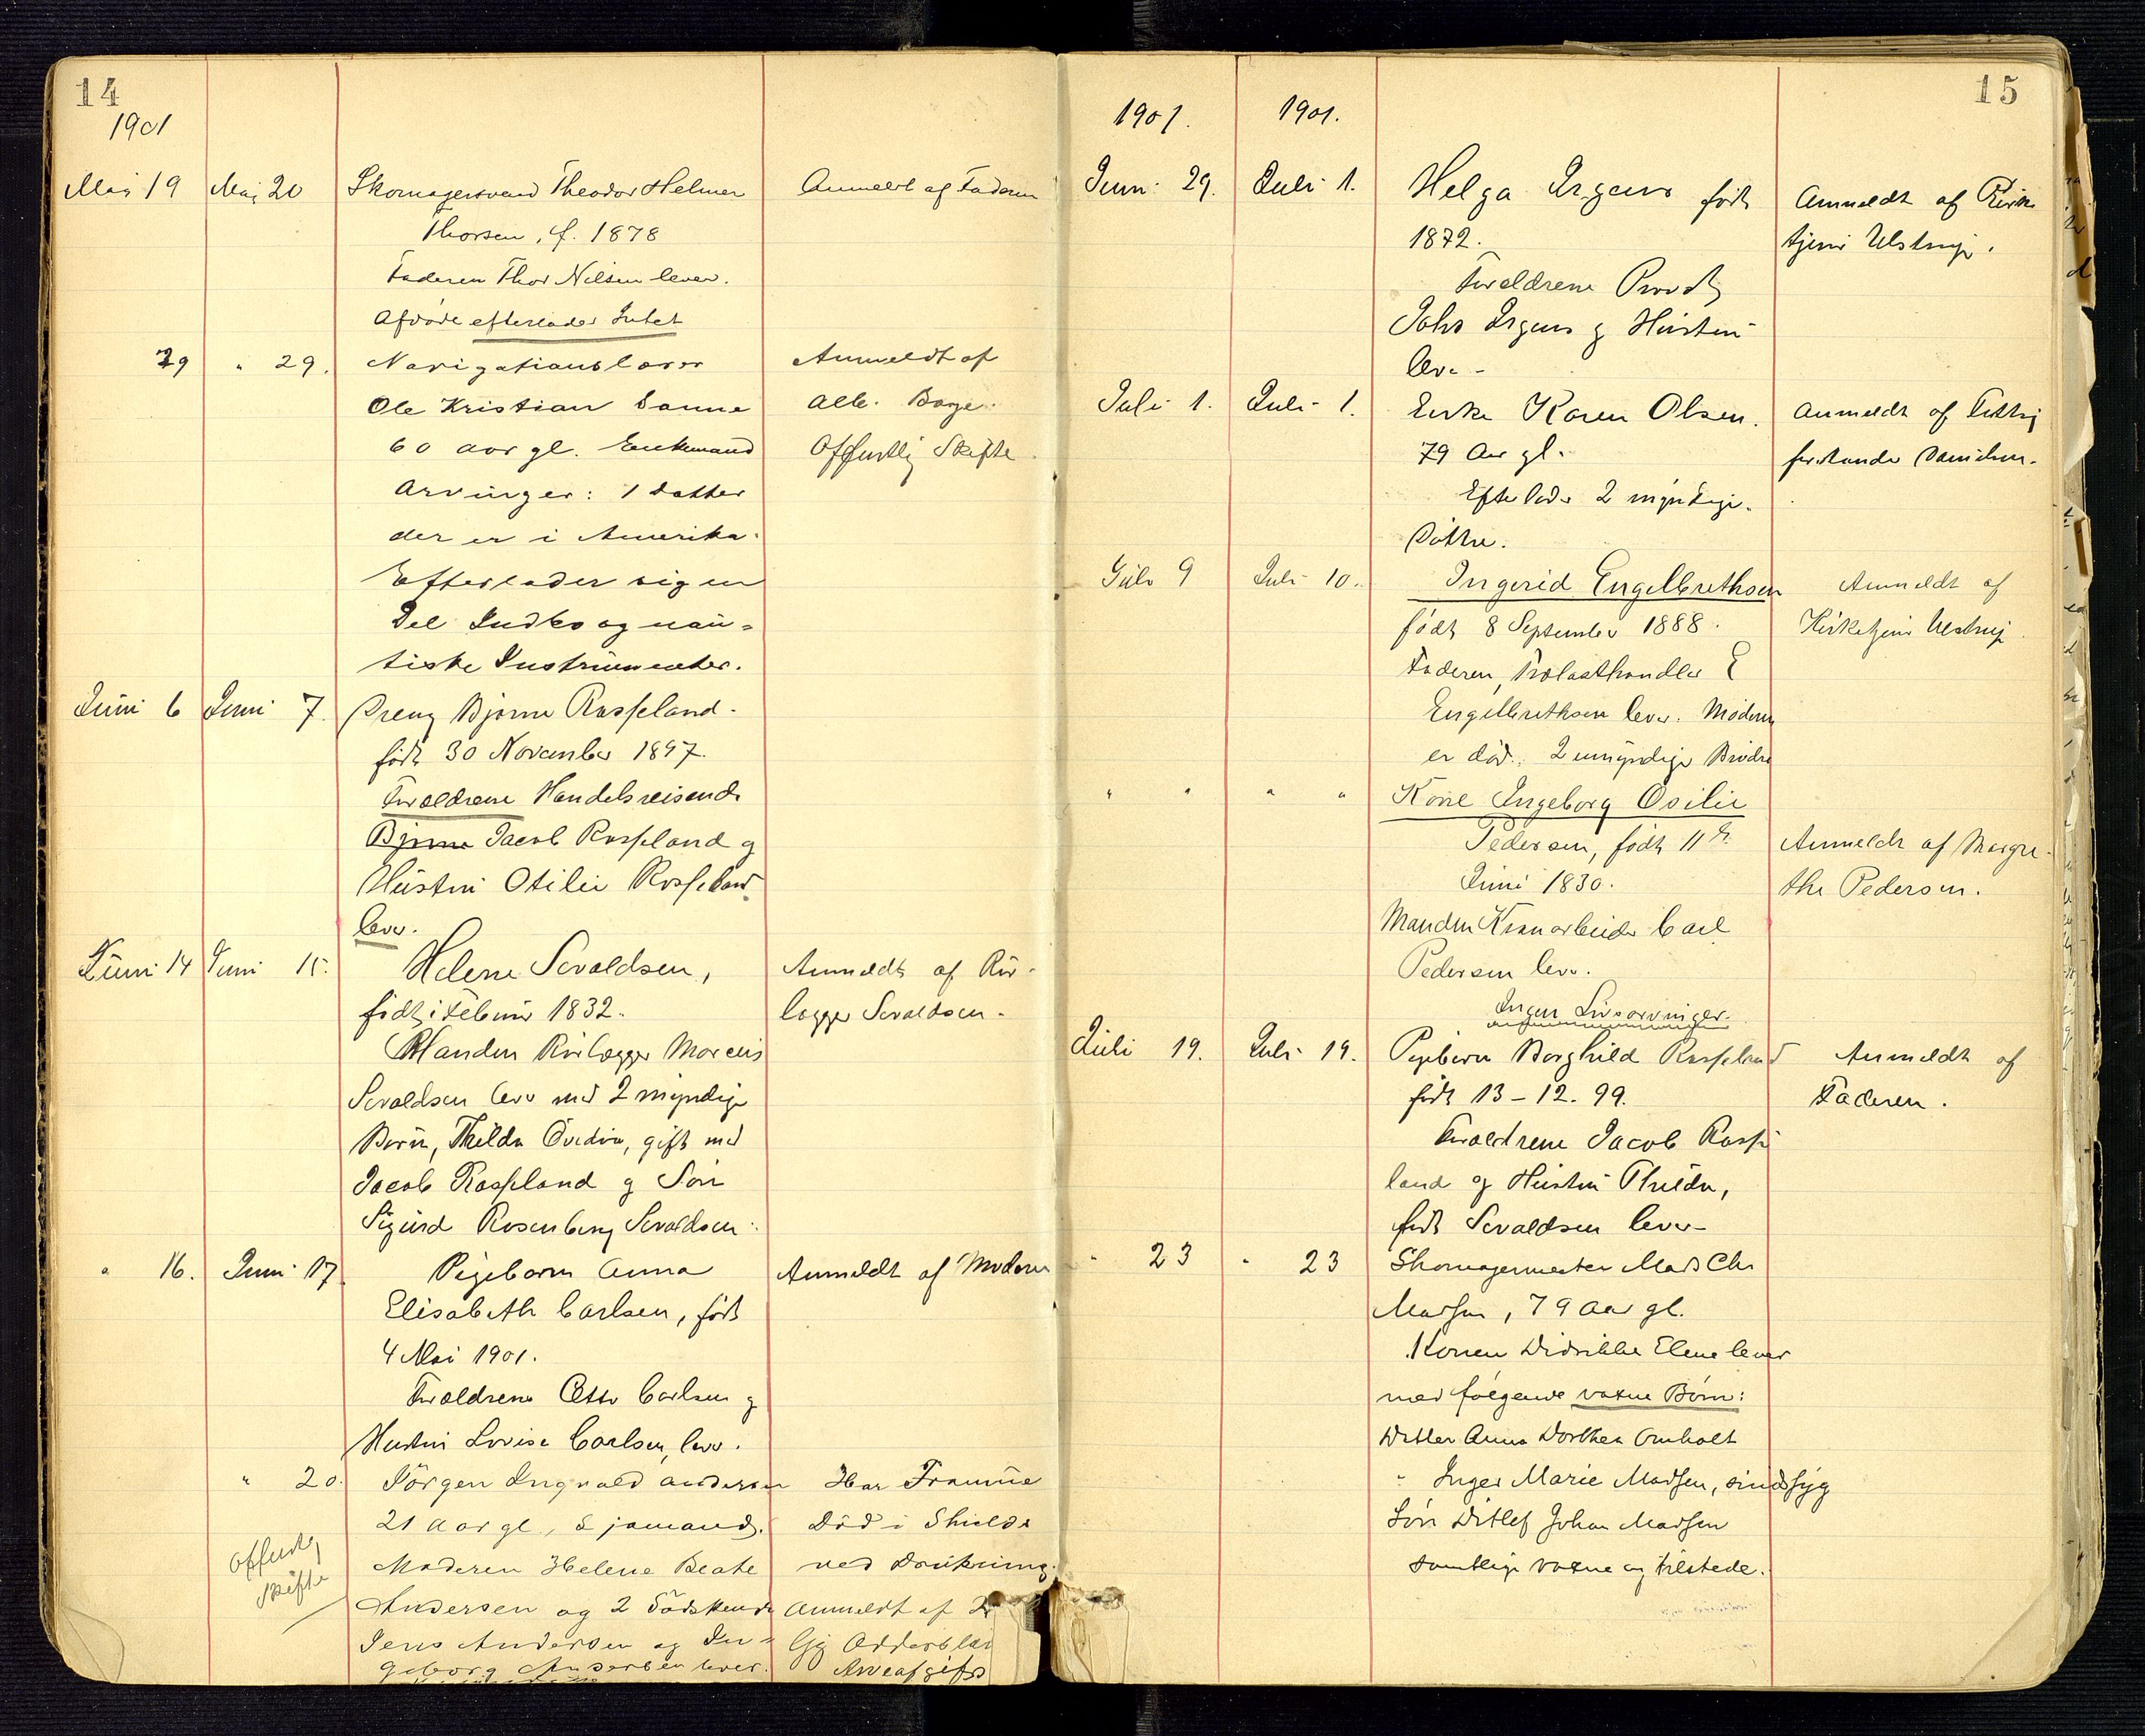 14
1901
Mai 19 Mai 20 Skomagersvend Theodor Helmer Anmeldt af Faderen
Thorsen, f. 1878
Faderen Thor Nilsen lever.
Afdøde efterlader Intet
29 " 29. Navigationslærer Anmeldt af
Ole Kristian Sanne Alb. Boye.
60 aar gl. Enkemand Offentlig Skifte
Arvinger: 1 Datter
der er i Amerika.
Efterlader sig en
Del Indbo og nau=
tiske Instrumenter.
Juni 6 Juni 7. Dreng Bjarne Rosseland.
født 30 November 1897.
Forældrene Handelsreisende
Bjarne Jacob Rosseland og
Hustru Otilie Rosseland
lever.
Juni 14 Juni 15. Helene Sevaldsen, Anmeldt af Rør-
født i Februar 1832. lægger Sevaldsen.
Manden Rørlægger Marcus
Sevaldsen lever med 2 myndige
Børn, Thilda Ovedia, gift med
Jacob Rosseland og Søn
Sigurd Rosenberg Sevaldsen.
" 16. Juni 17. Pigebarn Anna Anmeldt af Moderen
Elisabeth Carlsen, født
4 Mai 1901.
Forældrene Otto Carlsen og
Hustru Lovise Carlsen, lever.
" 20. Jørgen Ingvald Andersen Har Framnæ
21 Aar gl, Sjømand. Død i Shields
Moderen Helene Beate ved Drukning.
Offentlig
Skifte
Andersen og 2 Sødskende Anmeldt af
Jens Andersen og In=
geborg Andersen lever. Arveafgift
15
1901. 1901.
Juni 29. Juli 1. Helga Irgens født Anmeldt af Kirke
1872. tjener Ulstrup.
Forældrene Provst
Johs Irgens og Hustru
lever
Juli 1. Juli 1. Enke Karen Olsen. Anmeldt af Fattig
79 Aar gl. forstander Danielsen.
Efterlader 2 myndige
Døttre.
Juli 9 Juli 10. Ingerid Engelbrethsen Anmeldt af
født 8 September 1888. Kirketjener Ulstrup
Faderen, Trælasthandler E
Engelbrethsen lever. Moderen
er død. 2 umyndige Brødre
" " " " Kone Ingeborg Osilie
Pedersen, født 11te Anmeldt af Margre-
Juni 1830. the Pedersen.
Manden Kranarbeider Carl
Pedersen lever.
Ingen Livsarvinger.
Juli 19. Juli 19. Pigebarn Borghild Rosseland Anmeldt af
født 13-12. 99. Faderen.
Forældrene Jacob Rosse
land og Hustru Thilda,
født Sevaldsen lever
" 23 " 23 Skomagermester Mads Chr
Madsen, 79 Aar gl.
Konen Didrikke Elene lever
med følgende voxne Børn:
Datter Anna Dorthea Omholt
" Inger Marie Madsen, sindssyg
Søn Ditlef Johan Madsen
samtlige voxne og tilstede.